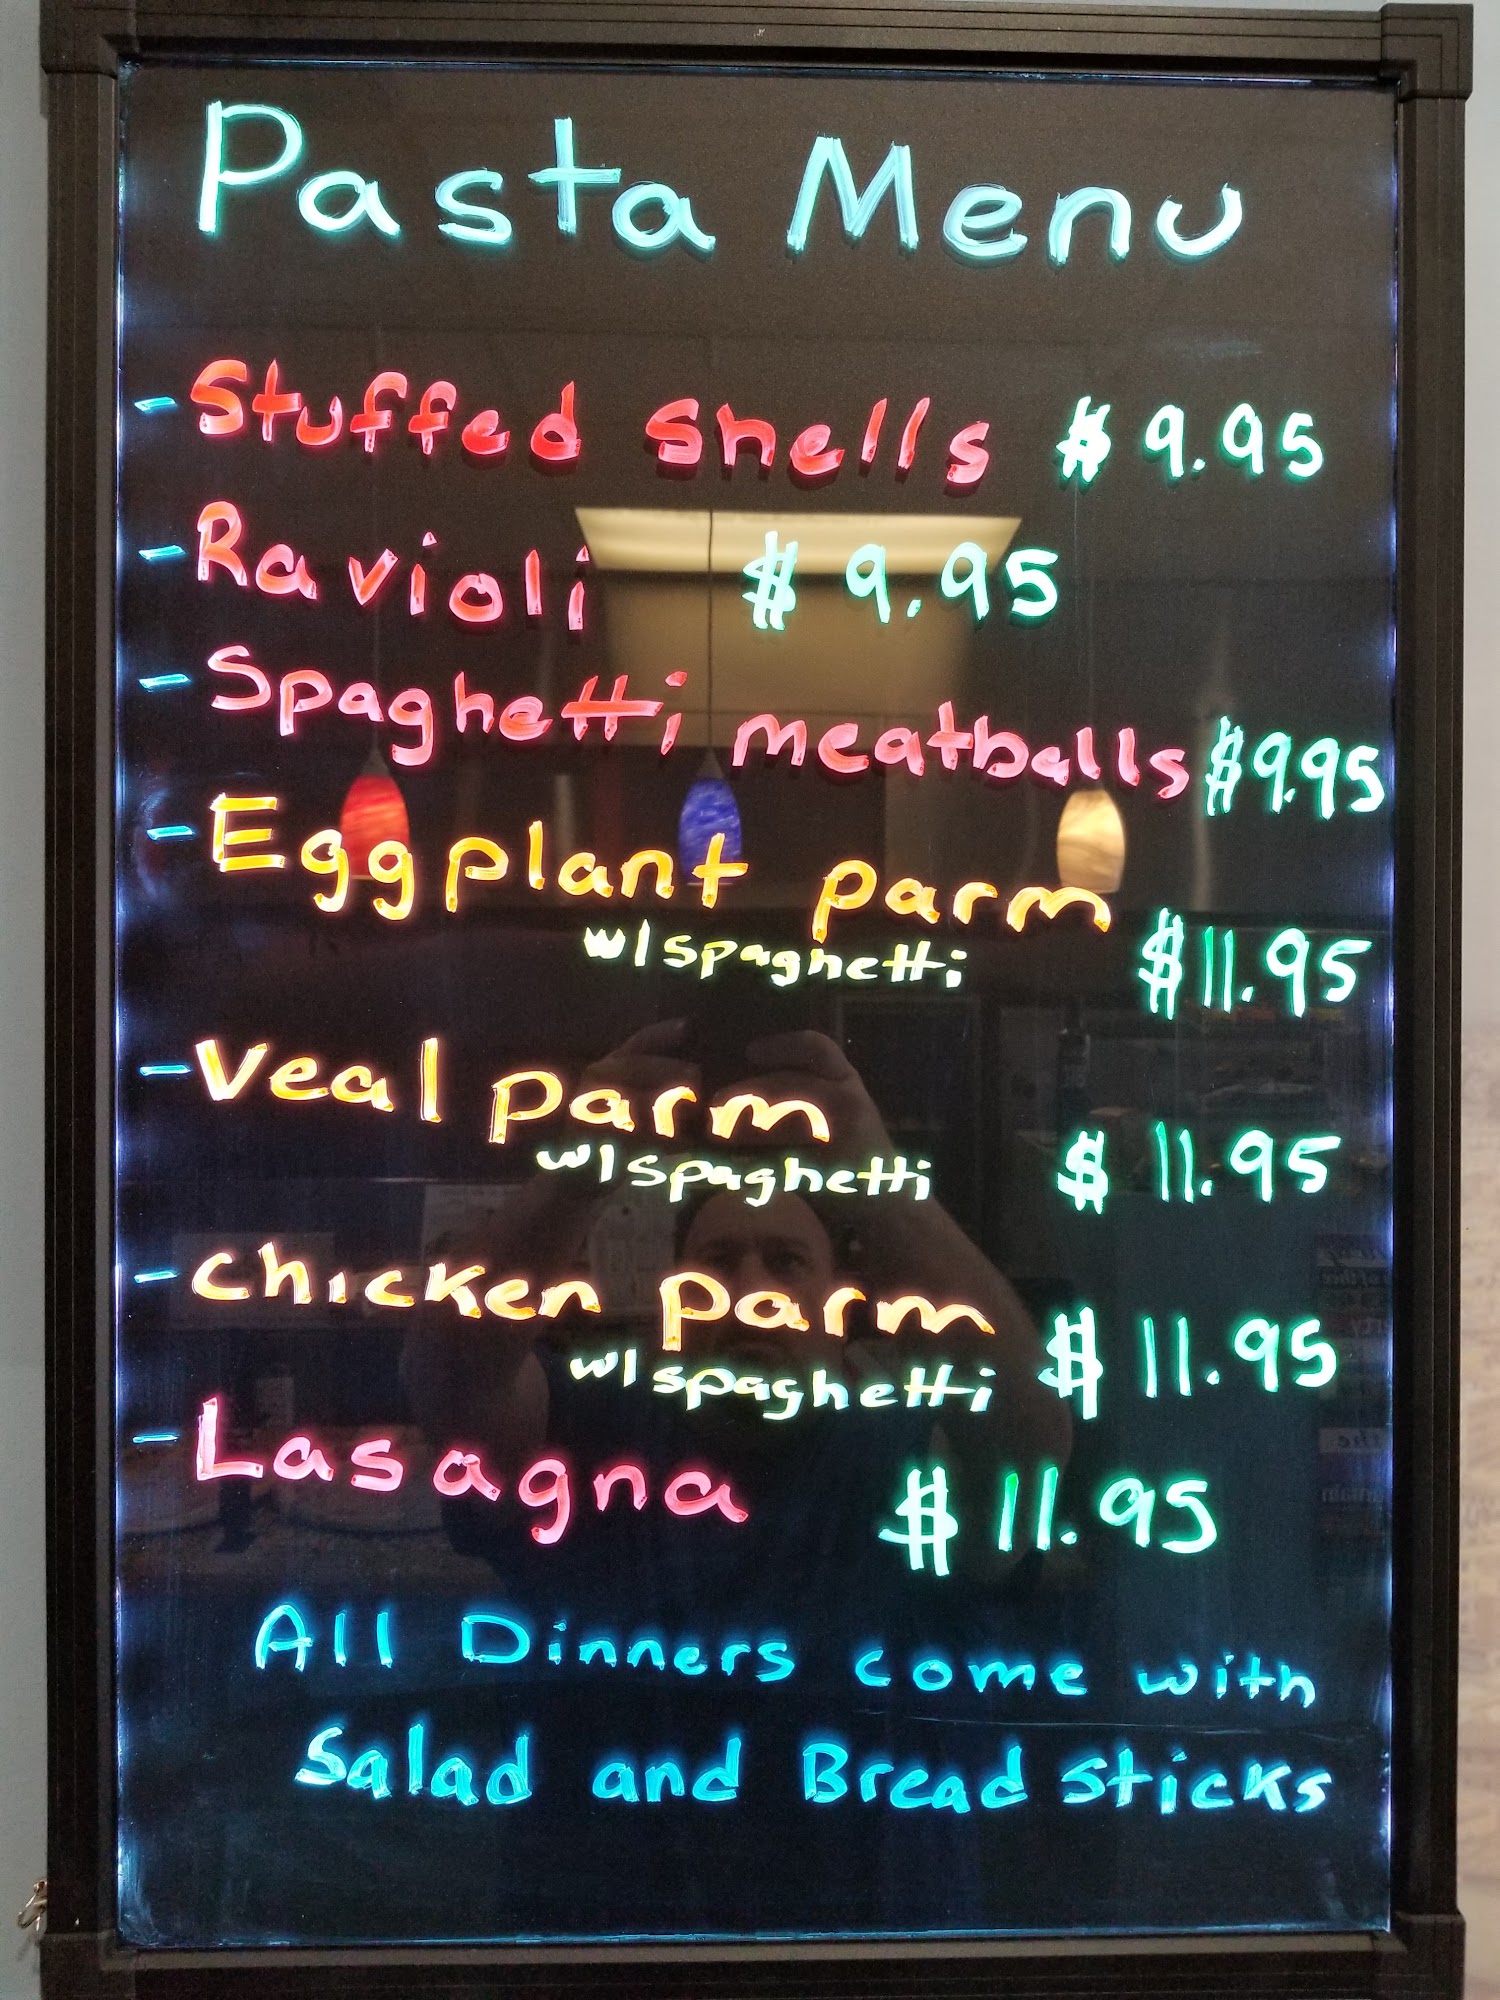 Pasta Menu
- Stuffed Shells $9.95
- Ravioli $9.95
- Spaghetti meatballs $9.95
- Eggplant parm
w/spaghetti $11.95
- Veal parm
w/spaghetti $11.95
- chicken parm
w/spaghetti $11.95
- Lasagna $11.95
All Dinners come with
Salad and Bread sticks